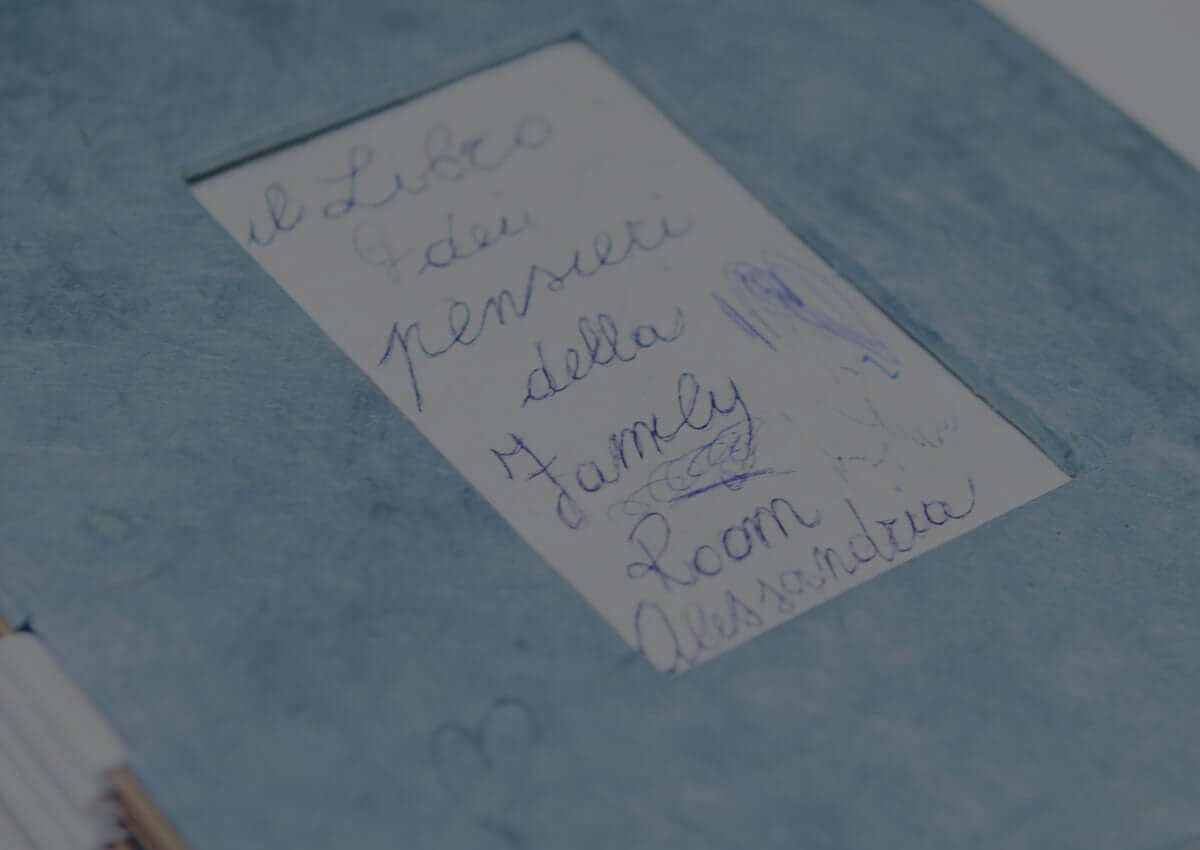 il Libro
dei
pensieri
della
Family
Room
Alessandria